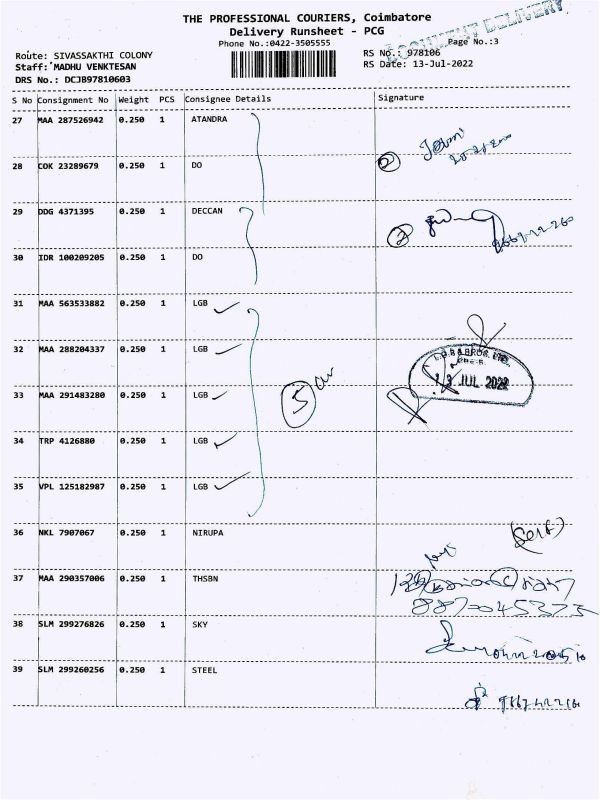 THE PROFESSIONAL COURIERS, Coimbatore
DOCUMENT DELIVERY
Delivery Runsheet - PCG
Phone No.:0422-3505555
Page No.:3
Route: SIVASSAKTHI COLONY
RS No.: 978106
Staff: MADHU VENKTESAN
RS Date: 13-Jul-2022
DRS No.: DCJB97810603
S No Consignment No Weight PCS Consignee Details Signature
27 MAA 287526942 0.250 1 ATANDRA
2
28 COK 23289679 0.250 1 DO
29 DDG 4371395 0.250 1 DECCAN
2
30 IDR 100209205 0.250 1 DO
31 MAA 563533882 0.250 1 LGB
32 MAA 288204337 0.250 1 LGB
L.G.B & BROS. LTD.
33 MAA 291483280 0.250 1 LGB
5
13 JUL 2022
34 TRP 4126880 0.250 1 LGB
35 VPL 125182987 0.250 1 LGB
36 NKL 7907067 0.250 1 NIRUPA
(Self)
37 MAA 290357006 0.250 1 THSBN
38 SLM 299276826 0.250 1 SKY
39 SLM 299260256 0.250 1 STEEL